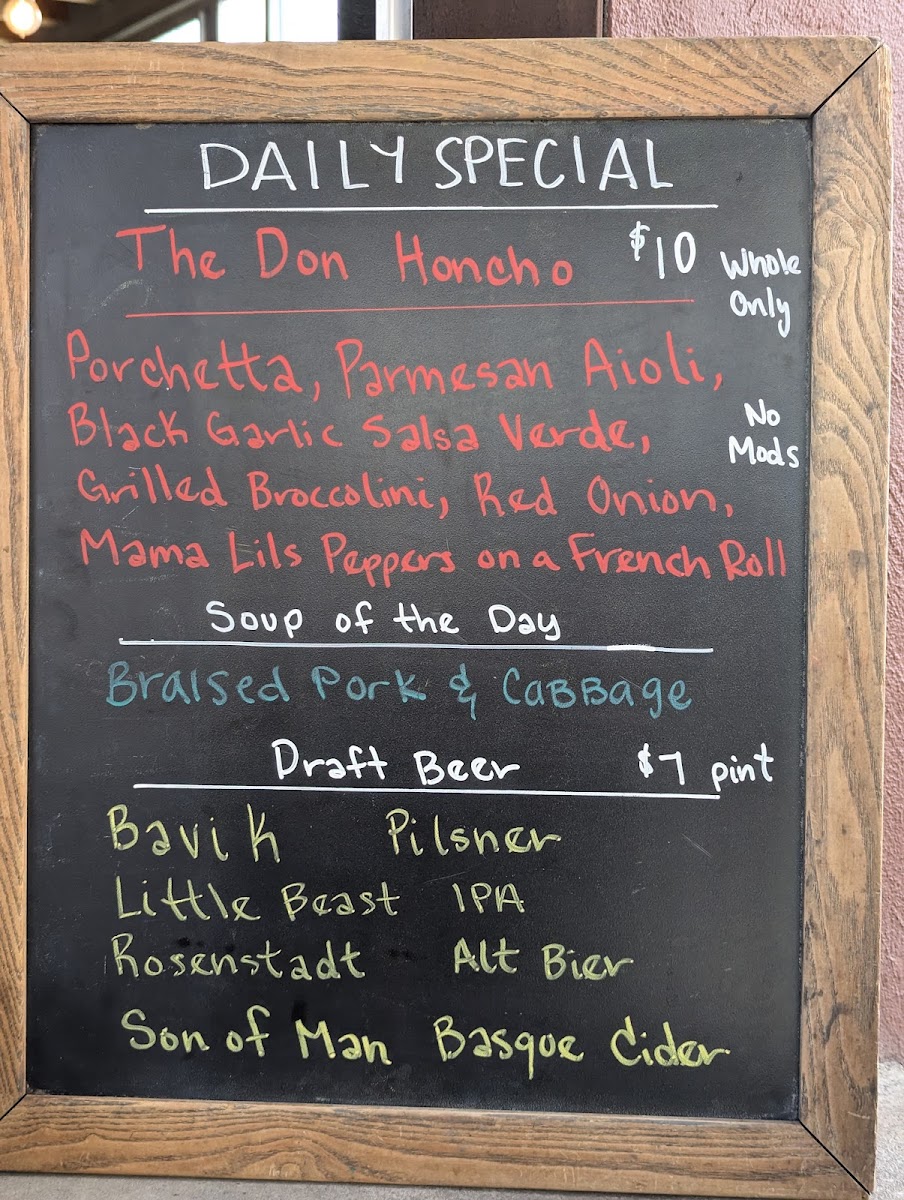 DAILY SPECIAL
The Don Honcho $10
Whole
Only
Porchetta, Parmesan Aioli,
Black Garlic Salsa Verde,
No
Mods
Grilled Broccolini, Red Onion,
Mama Lils Peppers on a French Roll
Soup of the Day
Braised Pork & Cabbage
Draft Beer $7 pint
Bavik Pilsner
Little Beast IPA
Rosenstadt Alt Bier
Son of Man Basque Cider